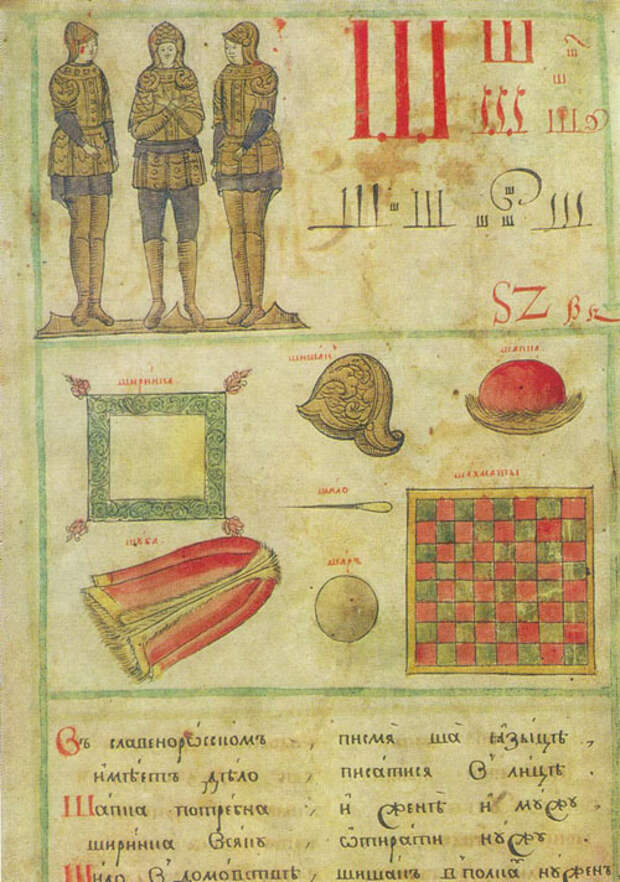 Ш Ш ш
ш ш ш
ш ш ш ш ш ш
SZ
ширинка шишакъ шапка
шило шахматы
шуба шаръ
Въ славеноросскомъ , писмѧ ша ѧзыцѣ ,
имѣетъ дѣло писатисѧ в лицѣ
Шапка потребна и женѣ и мужу
ширинка всякъ отирати нужу
Шило в домовствѣ шишакъ в полкахъ нуженъ